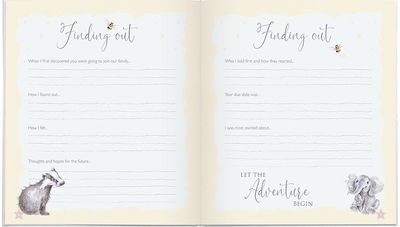 Finding out
When I first discovered you were going to join our family...
How I found out...
How I felt...
Thoughts and hopes for the future...
Finding out
Who I told first and how they reacted...
Your due date was...
I was most excited about...
LET THE
Adventure
BEGIN